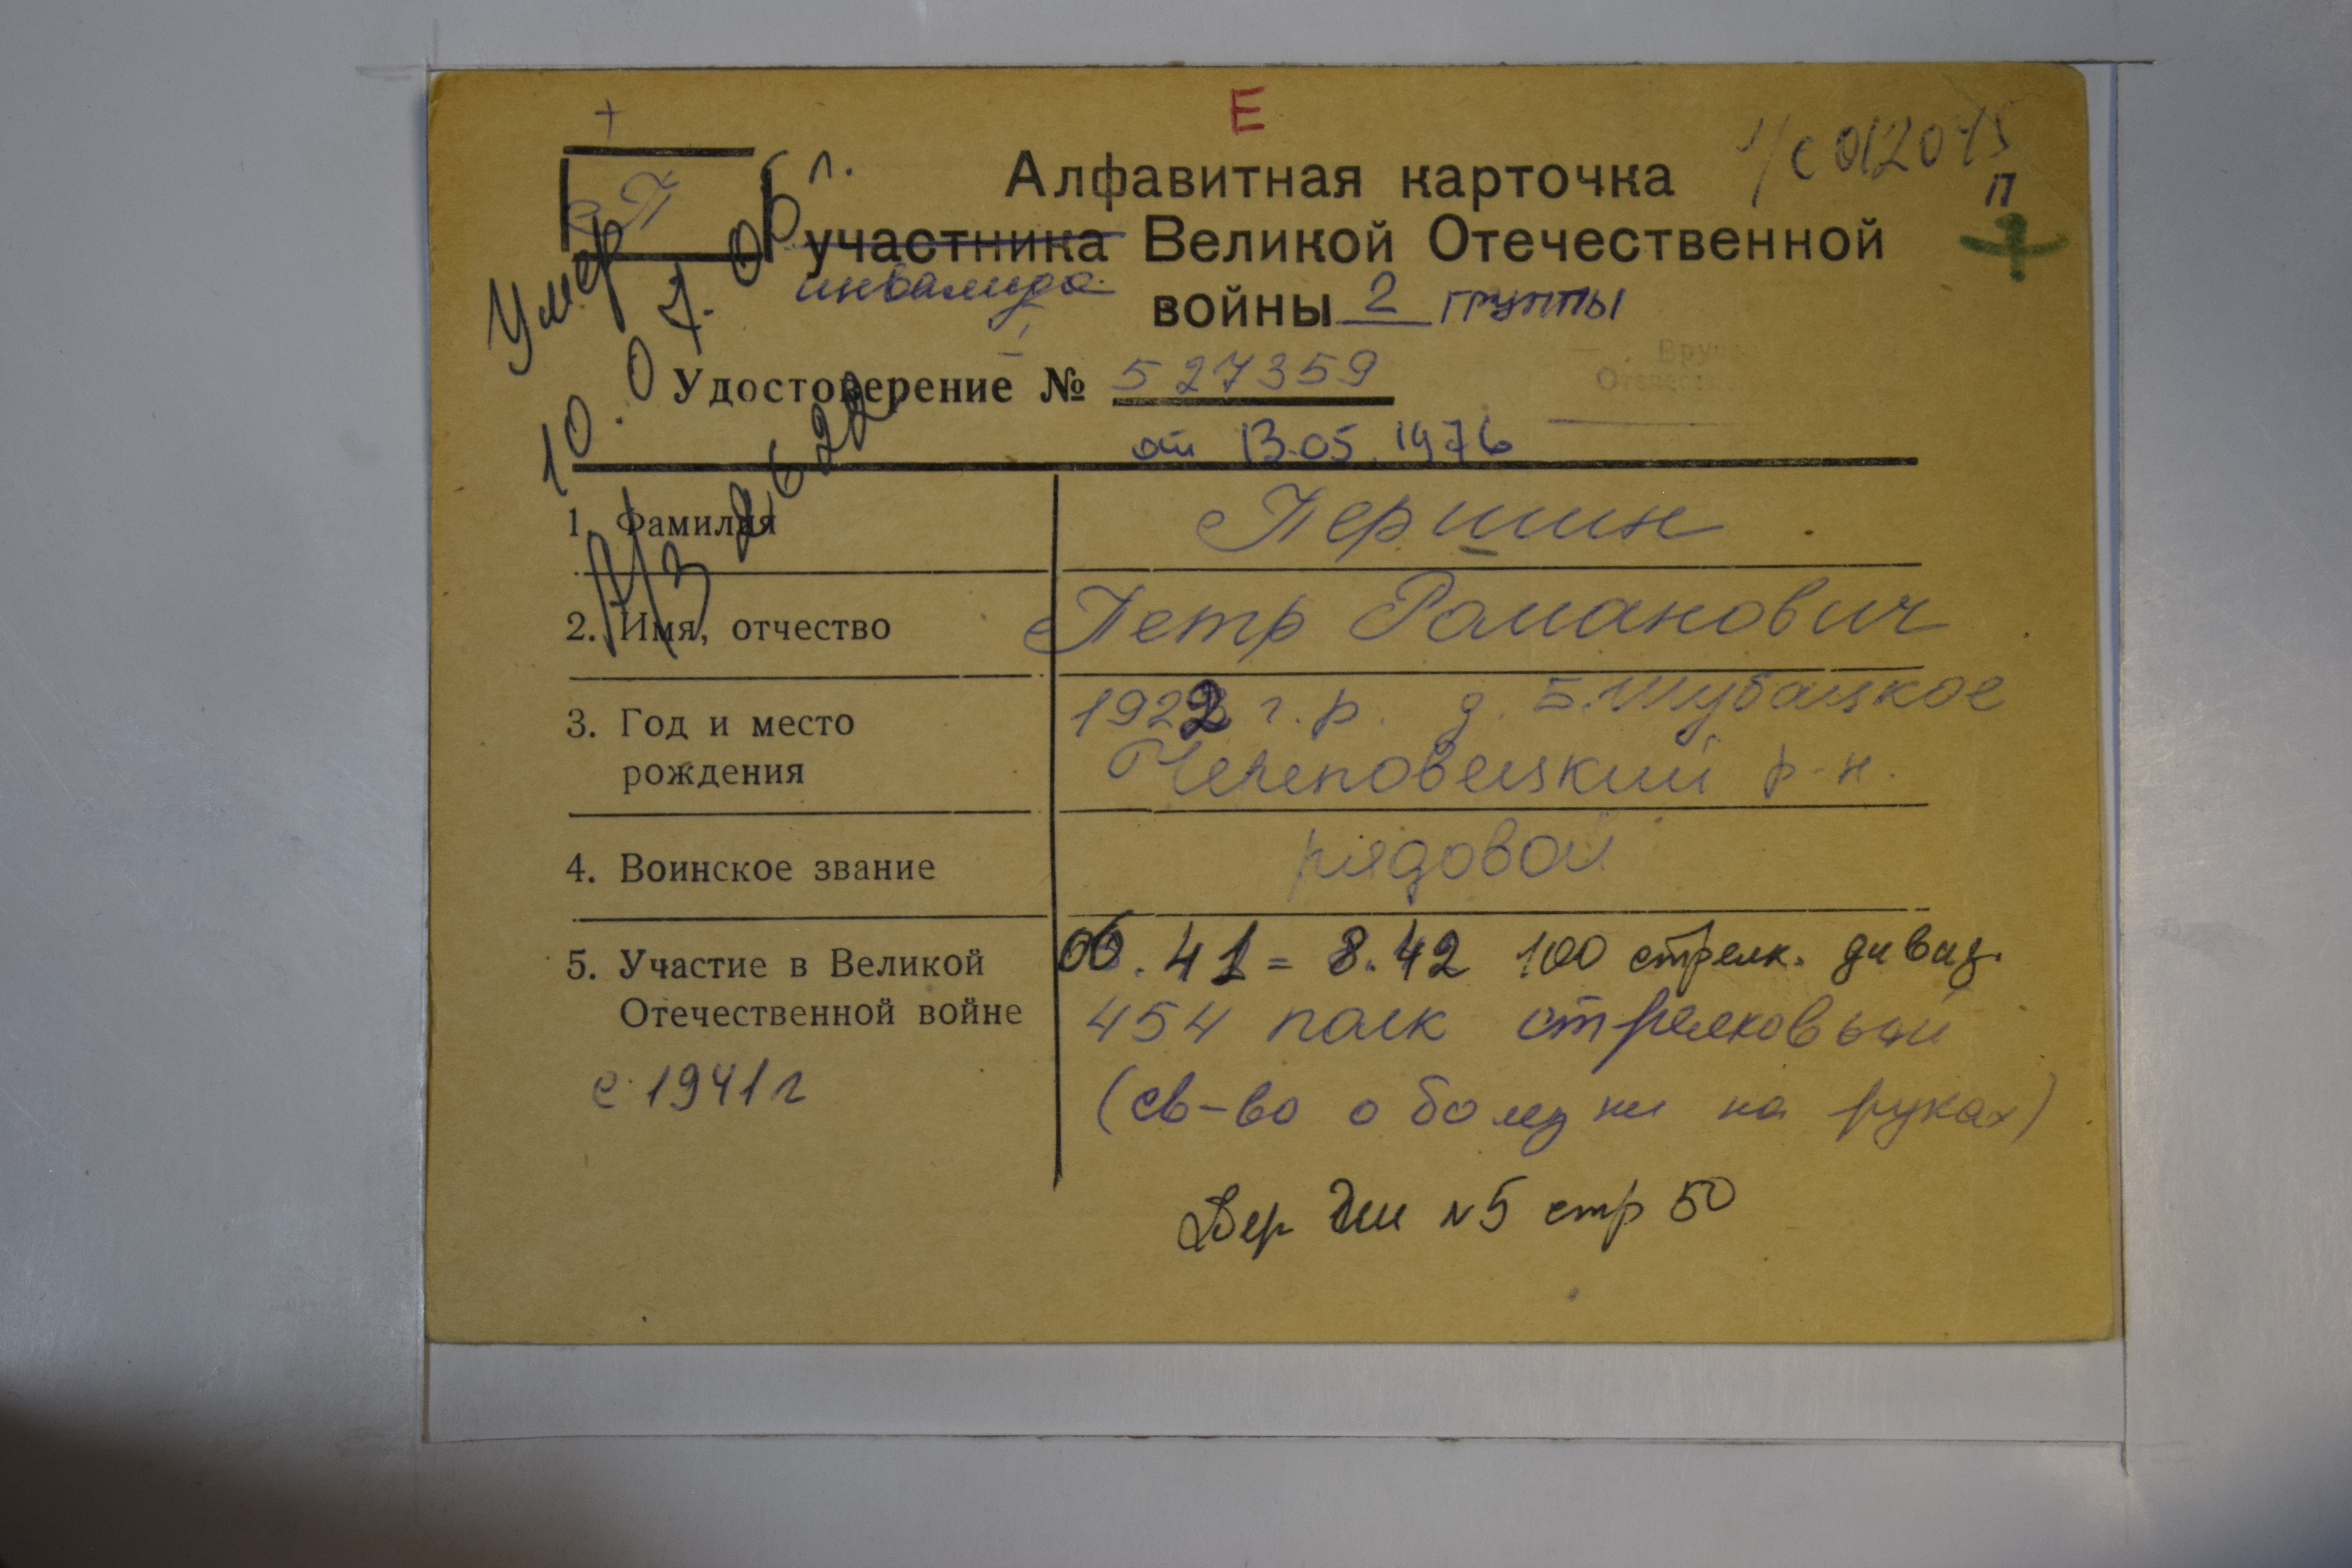 Е
+
П
у/с 012015
П
Алфавитная карточка
участника Великой Отечественной
инвалида
войны 2 группы
Умер 10.07.06 г.
Удостоверение № 527359
от 13.05.1976
А/з 2622
1. Фамилия Першин
2. Имя, отчество Петр Романович
3. Год и место 1922 г.р. д. Б.Шубацкое
рождения Череповецкий р-н.
4. Воинское звание рядовой
5. Участие в Великой 06.41 = 8.42 100 стрелк. дивиз.
Отечественной войне 454 полк стрелковый
с 1941 г (св-во о болезни на руках)
стр 50